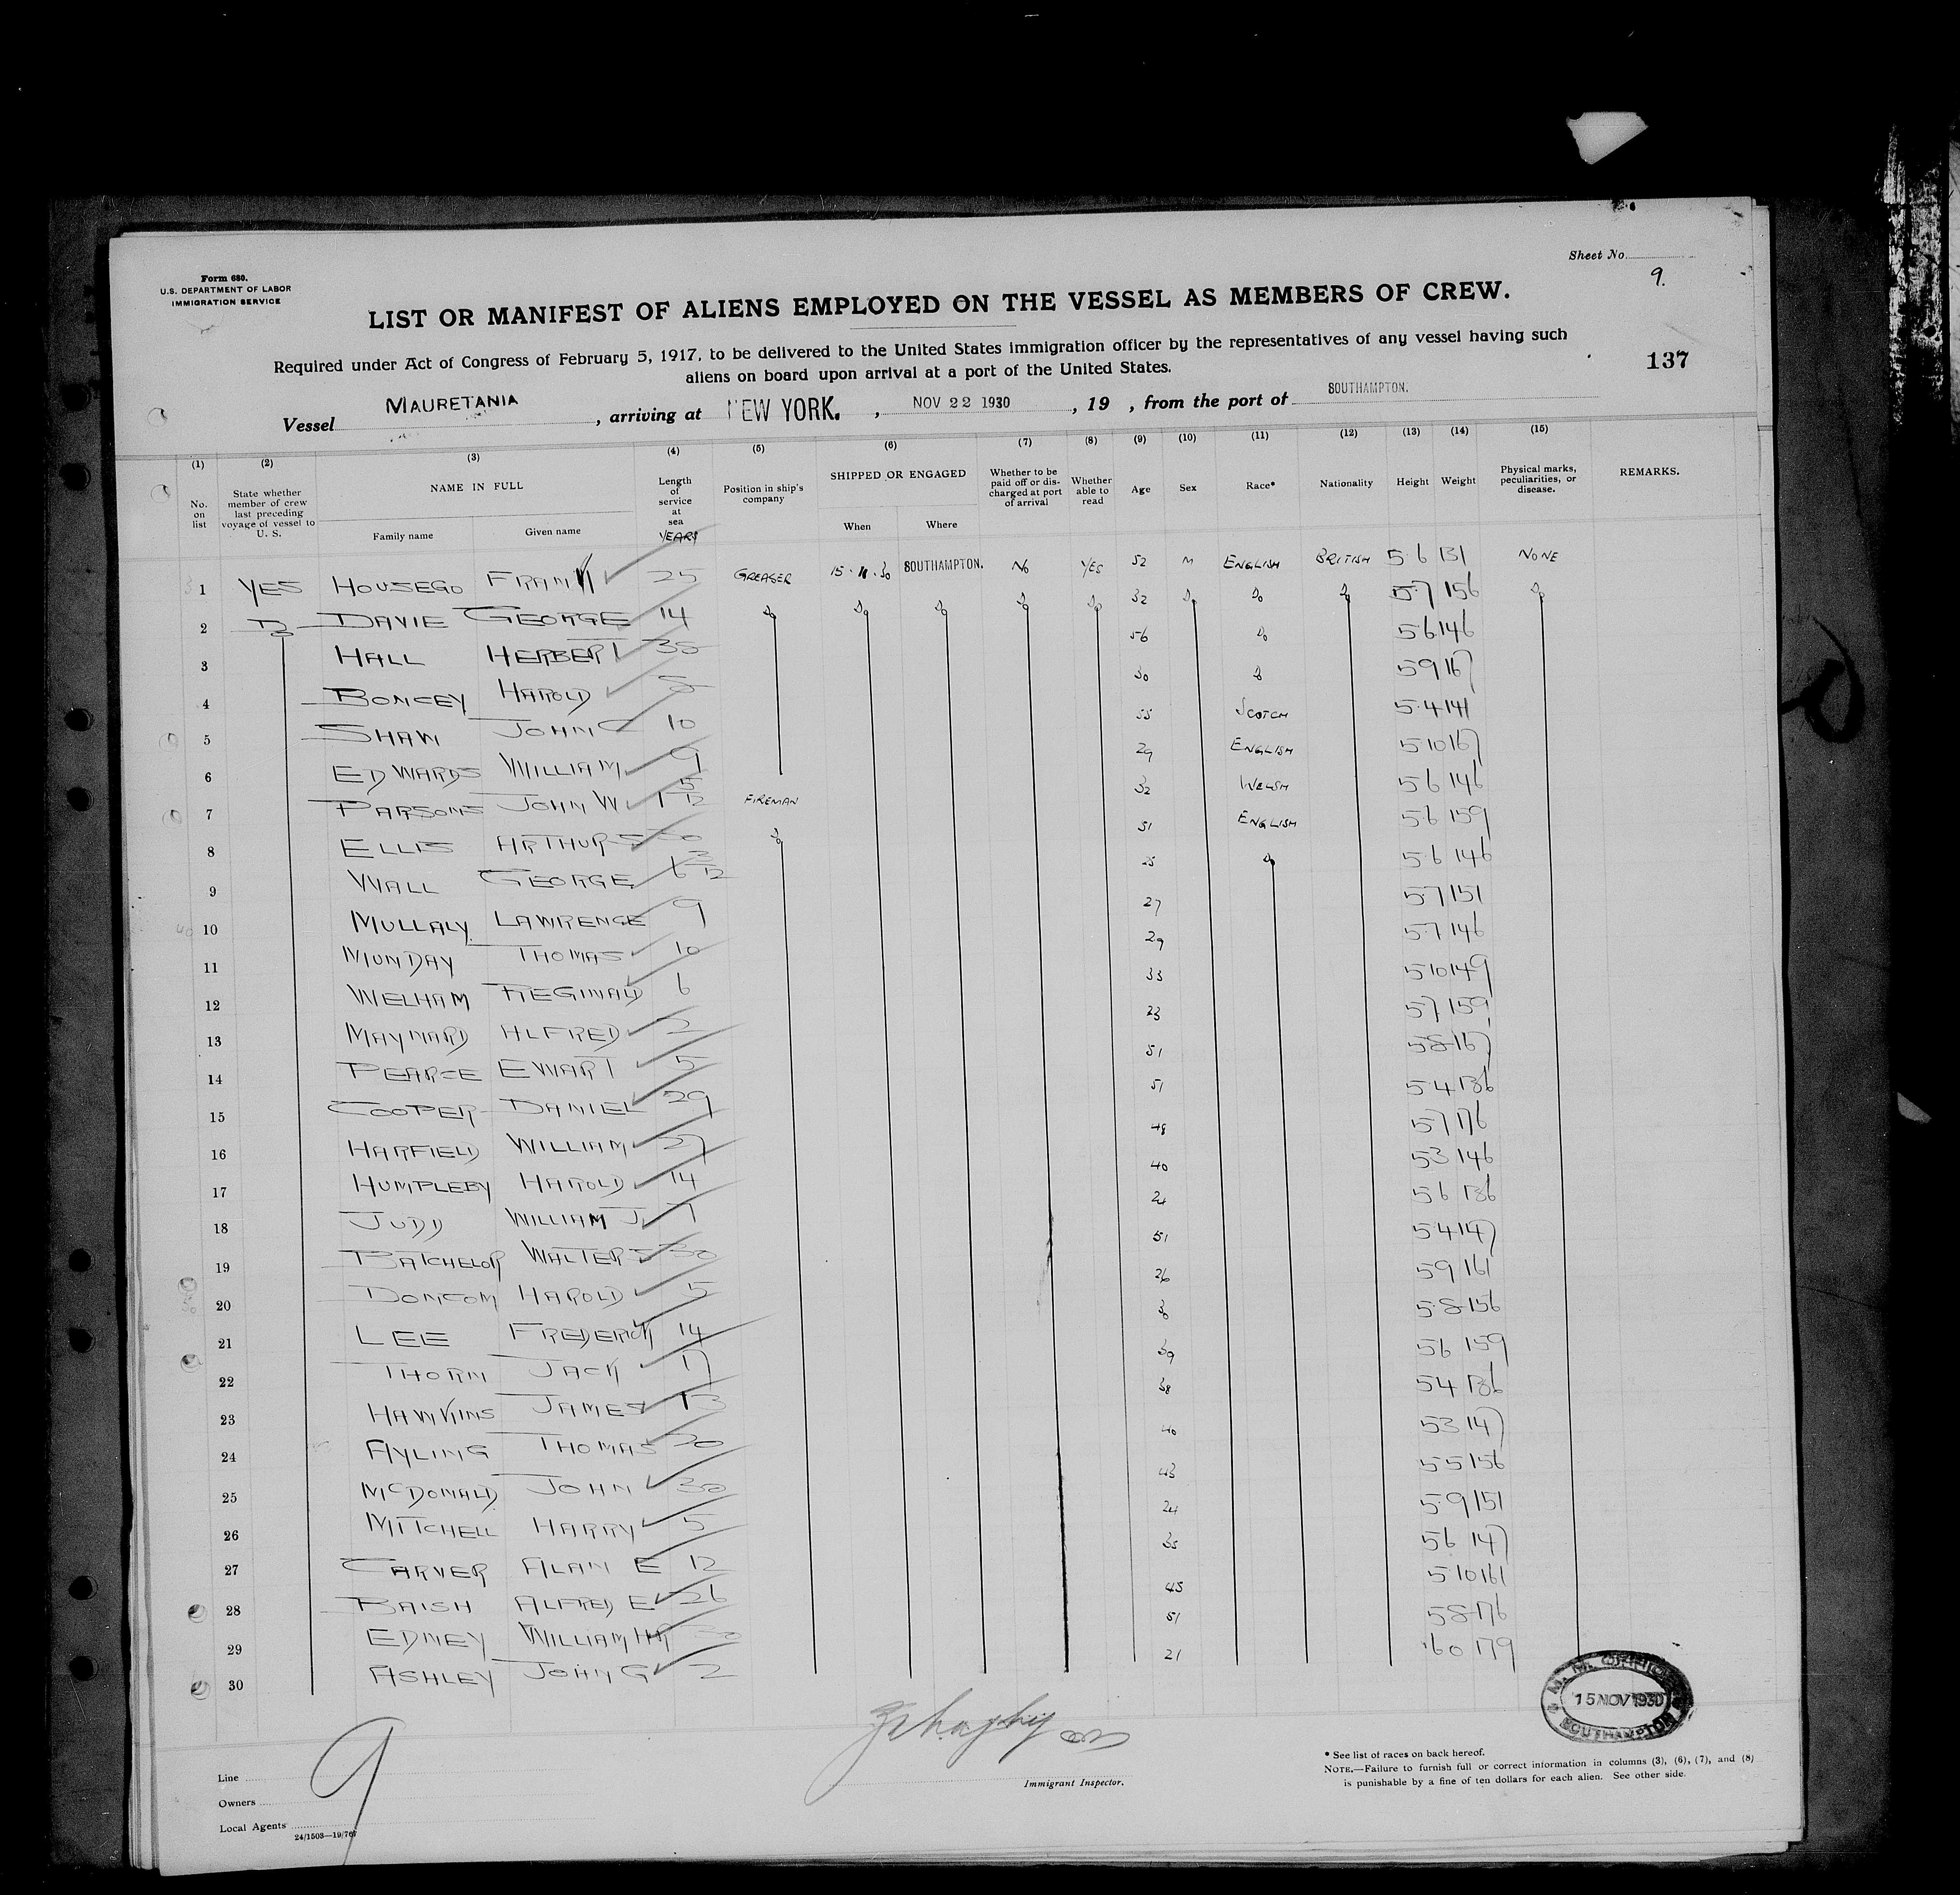 Form 680.
U.S. DEPARTMENT OF LABOR
IMMIGRATION SERVICE
Sheet No. 9.
LIST OR MANIFEST OF ALIENS EMPLOYED ON THE VESSEL AS MEMBERS OF CREW.
Required under Act of Congress of February 5, 1917, to be delivered to the United States immigration officer by the representatives of any vessel having such
aliens on board upon arrival at a port of the United States.
137
Vessel MAURETANIA, arriving at NEW YORK., NOV 22 1930, 19 , from the port of SOUTHAMPTON.
(1) (2) (3) (4) (5) (6) (7) (8) (9) (10) (11) (12) (13) (14) (15)
No. on list State whether member of crew last preceding voyage of vessel to U. S. NAME IN FULL Length of service at sea Position in ship's company SHIPPED OR ENGAGED Whether to be paid off or discharged at port of arrival Whether able to read Age Sex Race* Nationality Height Weight Physical marks, peculiarities, or disease. REMARKS.
Family name Given name YEARS When Where
1 YES HOUSEGO FRANK 25 GREASER 15.11.30 SOUTHAMPTON. NO YES 52 M ENGLISH BRITISH 5.6 131 NONE
2 Do DAVIE GEORGE 14 Do Do Do Do Do 32 Do Do Do 5.7 156 Do
3 HALL HERBERT 35 56 Do 5.6 146
4 BONCEY HAROLD 5 30 Do 5.9 167
5 SHAW JOHN C 10 55 SCOTCH 5.4 141
6 EDWARDS WILLIAM 9 29 ENGLISH 5.10 167
7 PARSONS JOHN W 1 5/12 FIREMAN 32 WELSH 5.6 146
8 ELLIS ARTHUR S 30 Do 51 ENGLISH 5.6 159
9 WALL GEORGE 6 3/12 25 Do 5.6 146
10 MULLALY LAWRENCE 9 27 5.7 151
11 MUNDAY THOMAS 10 29 5.7 146
12 WELHAM REGINALD 6 33 5.10 149
13 MAYNARD ALFRED 2 23 5.7 159
14 PEARCE EWART 5 51 5.8 167
15 COOPER DANIEL 29 51 5.4 136
16 HARFIELD WILLIAM 27 48 5.7 176
17 HUMPLEBY HAROLD 14 40 5.3 146
18 JUDD WILLIAM J. 1 24 5.6 136
19 BATCHELOR WALTER S 30 51 5.4 147
20 DONCOM HAROLD 5 26 5.9 161
21 LEE FREDERICK 14 30 5.8 156
22 THORN JACK 17 39 5.6 159
23 HAWKINS JAMES 13 38 5.4 136
24 AYLING THOMAS 20 40 5.3 147
25 McDONALD JOHN 30 43 5.5 156
26 MITCHELL HARRY 5 24 5.9 151
27 CARVER ALAN E 12 35 5.6 147
28 BAISH ALFRED E 26 45 5.10 161
29 EDNEY WILLIAM HR 30 51 5.8 176
30 ASHLEY JOHN G 2 21 6.0 179
M. M. OFFICE
15 NOV 1930
SOUTHAMPTON
9
Line
Owners
Local Agents
24/1503—19/767
Immigrant Inspector.
* See list of races on back hereof.
NOTE.—Failure to furnish full or correct information in columns (3), (6), (7), and (8)
is punishable by a fine of ten dollars for each alien. See other side.